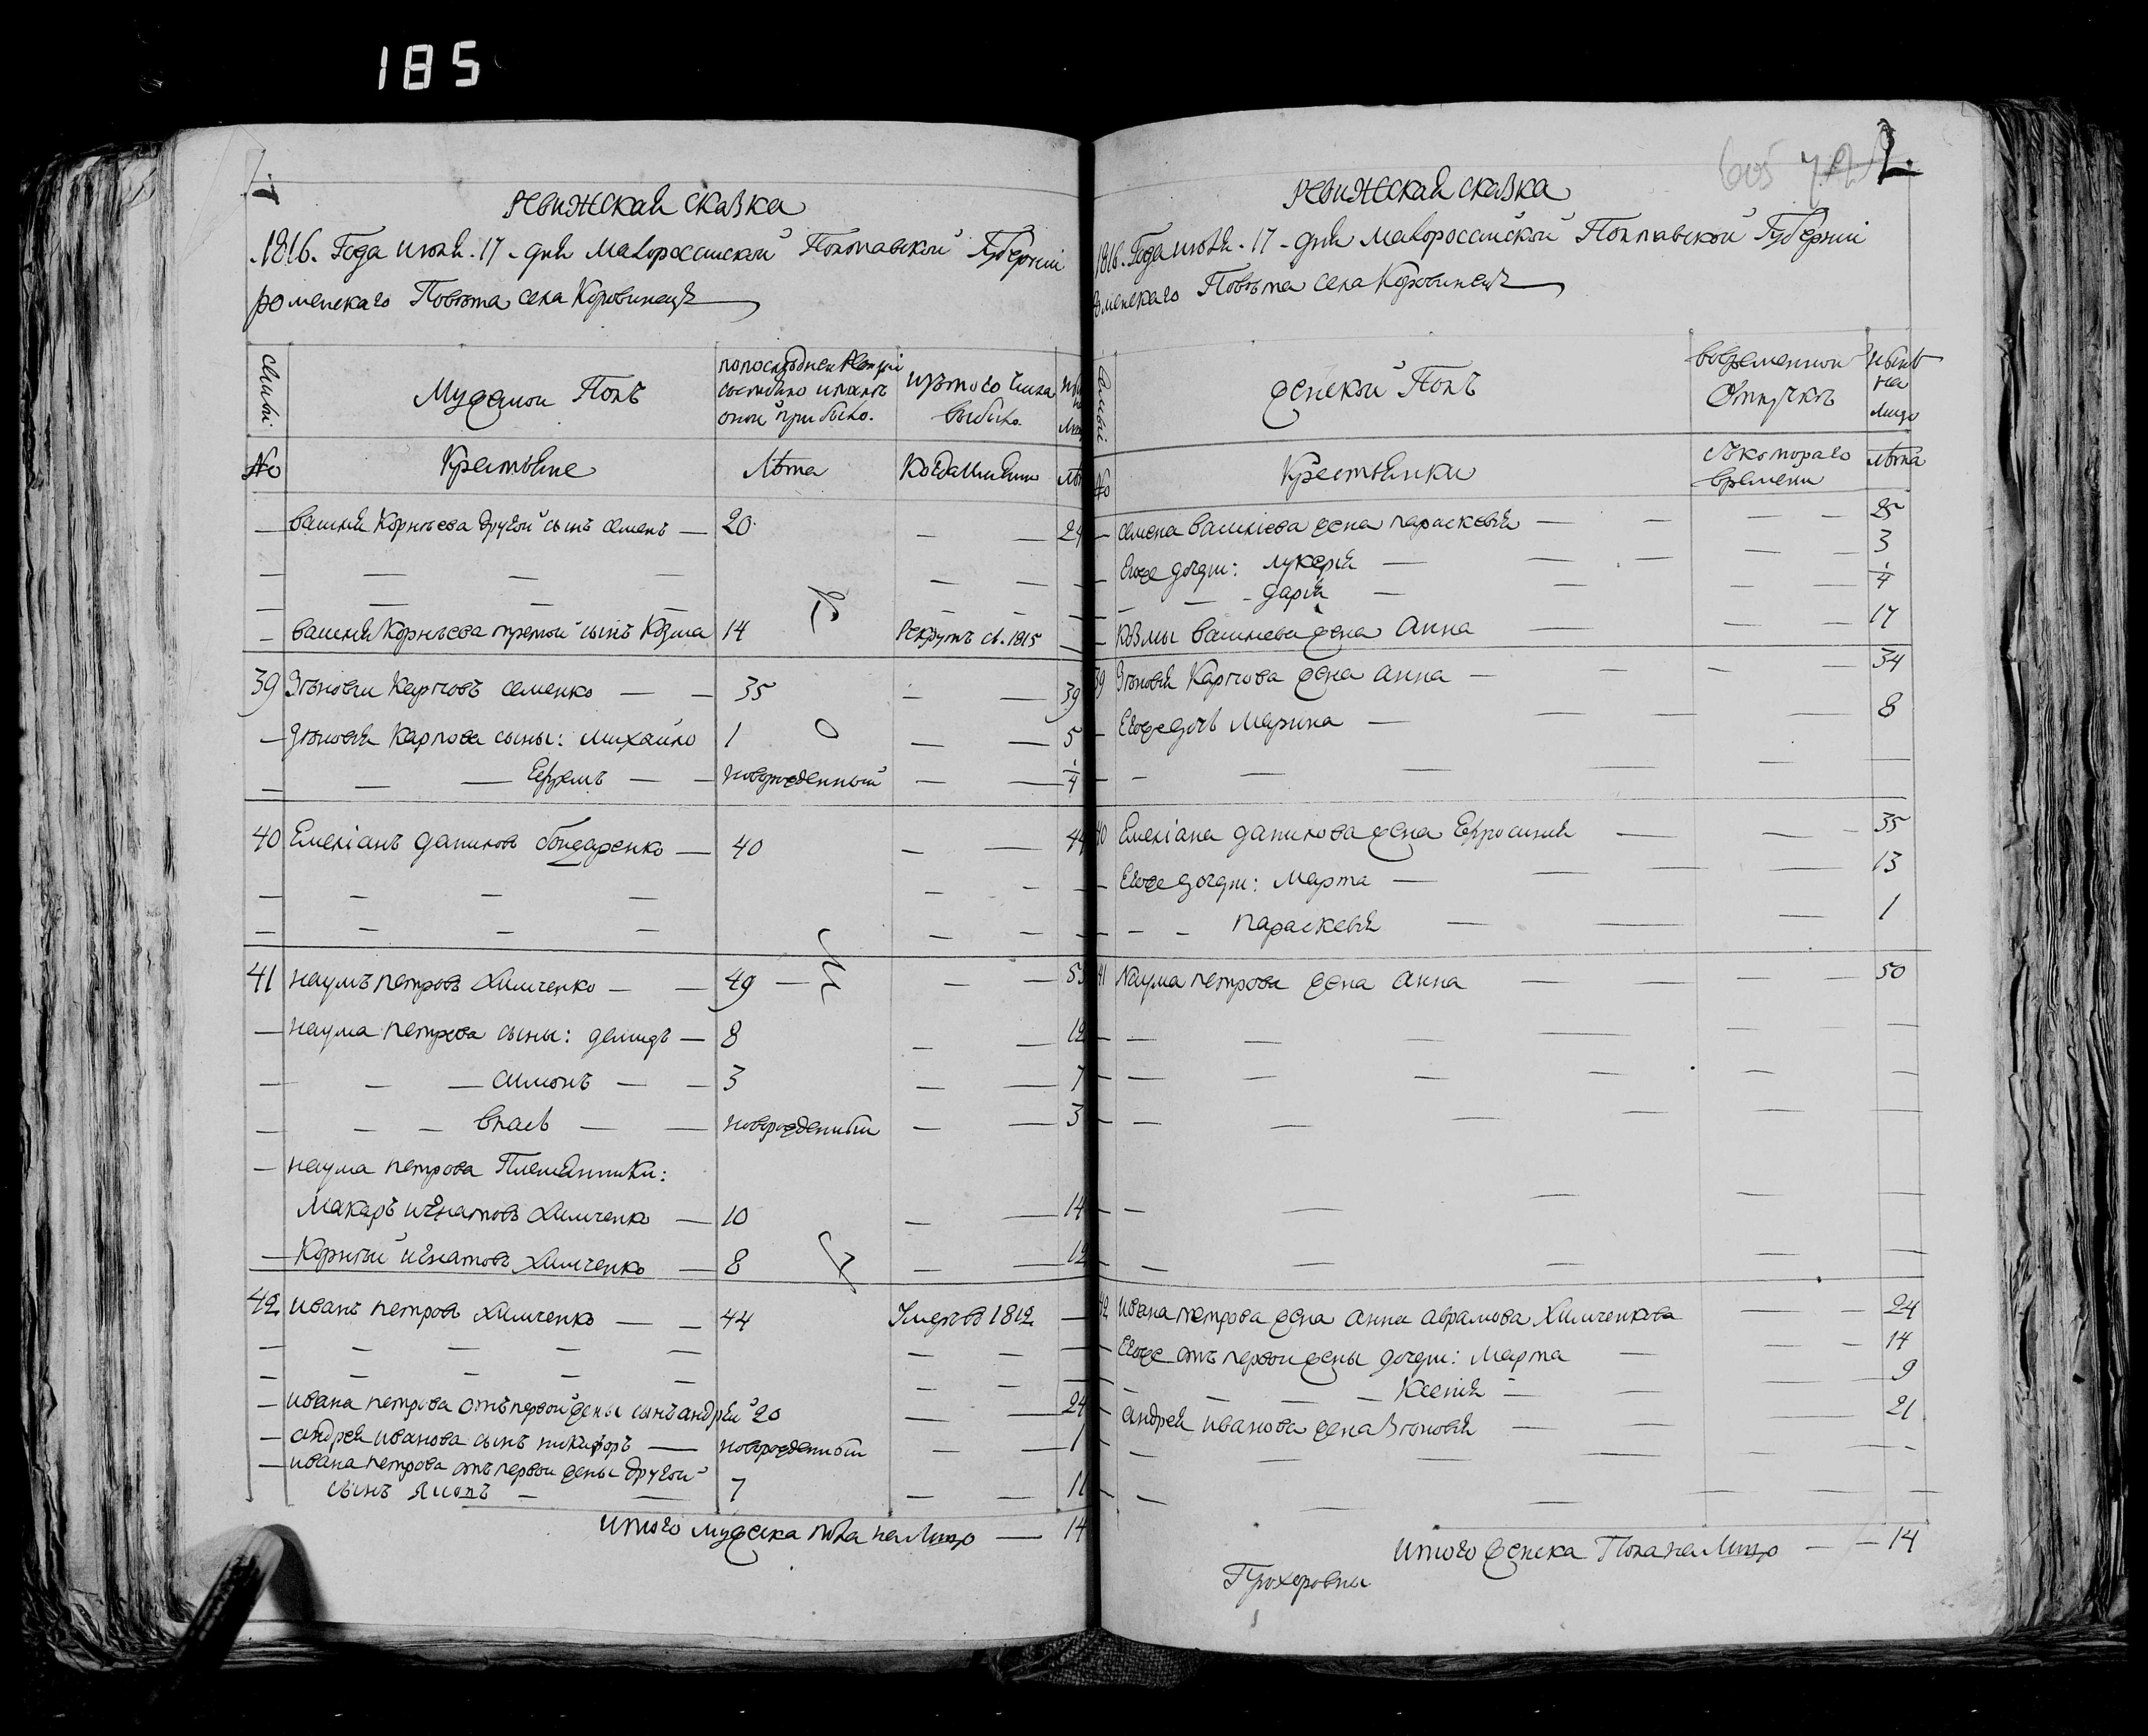 185
605
Ревижская сказка
1816. Года июня. 17 - дня Малороссийской Полтавской Губернии
роменскаго Повѣта села Коровинецъ
Семьи
Мужескои Полъ
попоследнеи Ревизіи
состояло ипослѣ
оной прибыло.
изтого числа
выбыло.
№
Крестьяне
Лѣта
Когда имянно
василія Корнѣева другой сынъ семенъ — 20
василія Корнѣева третой сынъ Козма 14 Рекрутъ в. 1815
39 Зѣновіи Карповъ семенко — — 35 — — 39
— Зѣновія Карпова сыны: михайло 1 — — 5
— — — Ефремъ — — новорожденный — —
40 Емеліанъ данилов бондаренко — 40 — — 44
41 наумъ петровъ Химченко — — 49 — — — 53
— наума петрова сыны: демидъ — 8 — — 12
— — — симонъ — — 3 — — 7
— — — власъ — — новорожденный — — 3
— наума петрова Племянники:
Макаръ игнатовъ Химченко — 10 — — 14
— Корнѣй игнатовъ Химченко — 8 — — 12
42 иванъ петровъ Химченко — — 44 Умеръ в 1812 —
— ивана петрова отъ первой жены сынъ андрей 20 — — 24
— андрея иванова сынъ никифоръ — новорожденный — — 1
— ивана петрова отъ первои жены другой
сынъ — — 7 — — 11
итого мужеска пола на лицо — 14
Ревижская сказка
1816. Года июня. 17 - дня Малороссийской Полтавской Губернии
роменскаго Повѣта села Коровинецъ
женской Полъ
вовременной
Отлучкѣ
нынѣ
на
лицо
№
Крестьянки
Съкотораго
времени
лѣта
— семена василіева жена параскевія — — — — 25
— Егоже дочери: лукерія — — — — — 3
— — - дарія — — — —
— Козмы василиева жена Анна — — — — 17
39 Зѣновія Карпова жена анна — — — — 34
— Егоже дочь Марина — — — — 8
40 Емеліана данилова жена Ефросинія — — — 35
— Егоже дочери: Марта — — — — 13
— — - параскевія — — — 1
41 Наума петрова жена анна — — — — 50
42 ивана петрова жена анна аврамова Химченкова — — 24
— Егоже отъ первои жены дочери: Марта — — — 14
— — — — Ксенія — — — 9
— андрея иванова жена Зѣновія — — — 21
итого женска Пола на лицо — — 14
Прохоровны